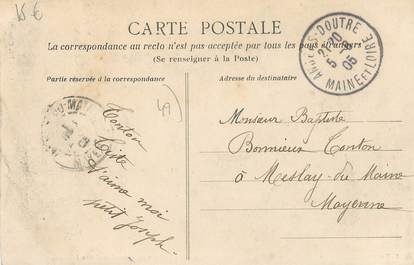 15 €
CARTE POSTALE
La correspondance au recto n'est pas acceptée par tous les pays étrangers
(Se renseigner à la Poste)
Partie réservée à la correspondance
Adresse du destinataire
ANGERS-DOUTRE
2 20
5
05
MAINE ET LOIRE
49)
Tonton
Titi
J'aime moi
petit Joseph.
Monsieur Baptiste
Bonnieux Tonton
à Meslay-du-Maine
Mayenne